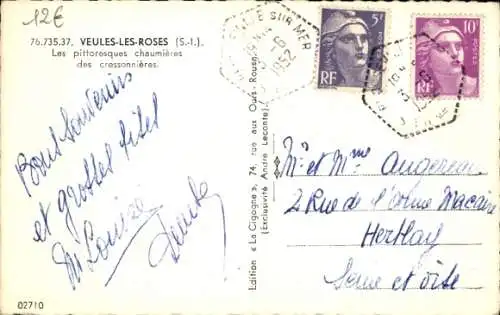 12€
76.735.37. VEULES-LES-ROSES (S.-I.).
Les pittoresques chaumières
des cressonnières.
Bons Souvenirs
et grosses bises
Louise
Edition « La Cigogne », 74, rue aux Ours - Rouen
(Exclusivité André Leconte).
SUR MER
1952
5F
POSTES
RF
10F
POSTES
RF
Mr et Mme
2 Rue de l'Orme Macaire
Herblay
Seine et Oise
02710